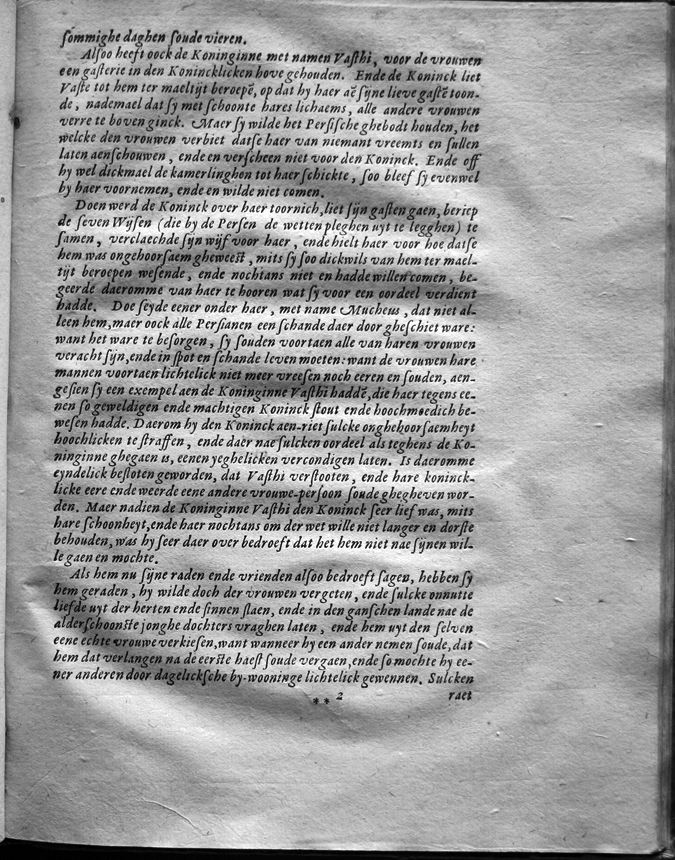 ſommighe daghen ſoude vieren.
Alſoo heeft oock de Koninginne met namen Vaſthi, voor de vrouwen
een gaſterie in den Konincklicken hove gehouden. Ende de Koninck liet
Vaſte tot hem ter maeltijt beropē, op dat hy haer aē ſijne lieve gaſtē toon-
de, nademael dat ſy met ſchoonte hares lichaems, alle andere vrouwen
verre te boven ginck. Maer ſy wilde het Perſiſche ghebodt houden, het
welcke den vrouwen verbiet datſe haer van niemant vreemts en ſullen
laten aenſchouwen, ende en verſcheen niet voor den Koninck. Ende off
hy wel dickmael de kamerlinghen tot haer ſchickte, ſoo bleef ſy evenwel
by haer voornemen, ende en wilde niet comen.
Doen werd de Koninck over haer toornich, liet ſijn gaſten gaen, beriep
de ſeven Wyſen (die by de Perſen de wetten pleghen uyt te legghen) te
ſamen, verclaechde ſijn wijf voor haer, ende hielt haer voor hoe datſe
hem was ongehoorſaem gheweeſt, mits ſy ſoo dickwils van hem ter mael-
tijt beroepen weſende, ende nochtans niet en hadde willen comen, be-
geerde daeromme van haer te hooren wat ſy voor een oordeel verdient
hadde. Doe ſeyde eener onder haer, met name Mucheus, dat niet al-
leen hem, maer oock alle Perſianen een ſchande daer door gheſchiet ware:
want het ware te beſorgen, ſy ſouden voortaen alle van haren vrouwen
veracht ſijn, ende in ſpot en ſchande leven moeten: want de vrouwen hare
mannen voortaen lichtelick niet meer vreeſen noch eeren en ſouden, aen-
geſien ſy een exempel aen de Koninginne Vaſthi haddē, die haer tegens ee-
nen ſo geweldigen ende machtigen Koninck ſtout ende hoochmoedich be-
weſen hadde. Daerom hy den Koninck aen-riet ſulcke onghehoorſaemheyt
hoochlicken te ſtraffen, ende daer nae ſulcken oordeel als teghens de Ko-
ninginne ghegaen is, eenen yeghelicken vercondigen laten. Is daeromme
eyndelick beſloten geworden, dat Vaſthi verſtooten, ende hare koninck-
licke eere ende weerde eene andere vrouwe-perſoon ſoude ghegheven wor-
den. Maer nadien de Koninginne Vaſthi den Koninck ſeer lief was, mits
hare ſchoonheyt, ende haer nochtans om der wet wille niet langer en dorſte
behouden, was hy ſeer daer over bedroeft dat het hem niet nae ſijnen wil-
le gaen en mochte.
Als hem nu ſijne raden ende vrienden alſoo bedroeft ſagen, hebben ſy
hem geraden, hy wilde doch der vrouwen vergeten, ende ſulcke onnutte
liefde uyt der herten ende ſinnen ſlaen, ende in den ganſchen lande nae de
alderſchoonſte jonghe dochters vraghen laten, ende hem uyt den ſelven
eene echte vrouwe verkieſen, want wanneer hy een ander nemen ſoude, dat
hem dat verlangen na de eerſte haeſt ſoude vergaen, ende ſo mochte hy ee-
ner anderen door dagelickſche by-wooninge lichtelick gewennen. Sulcken
** 2 raet